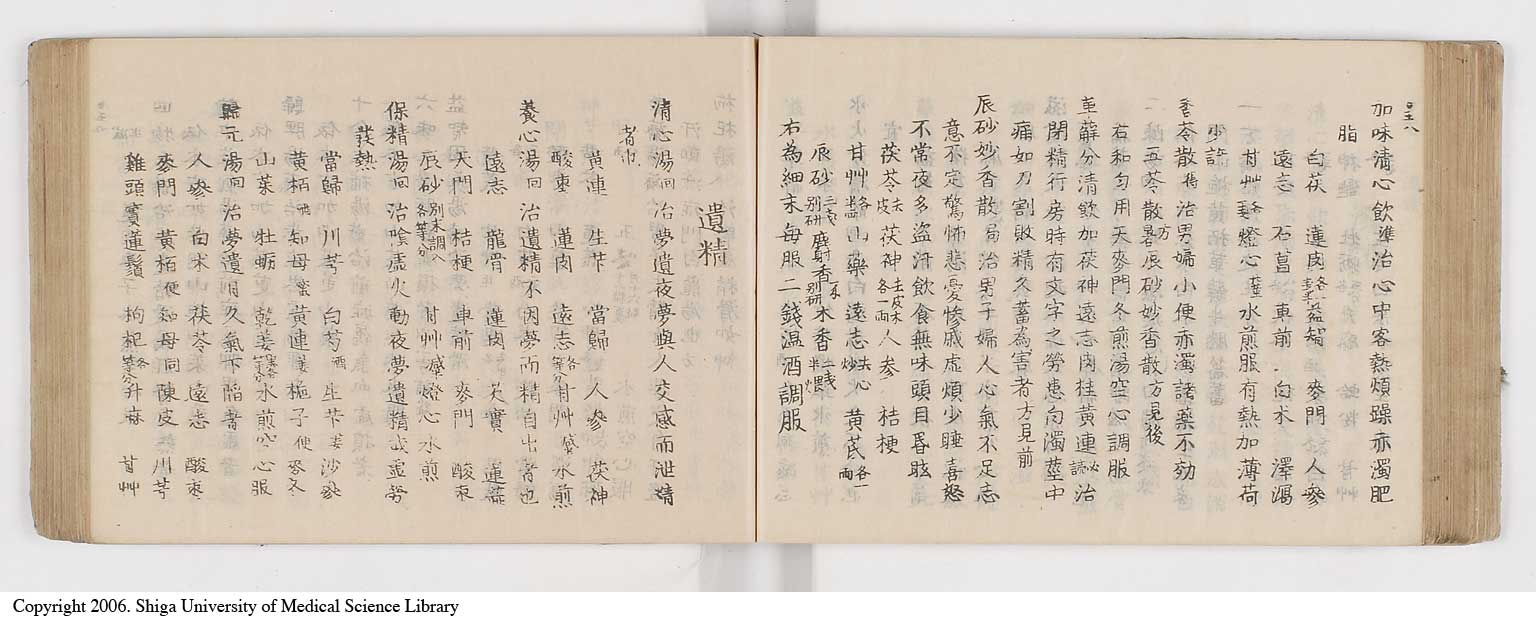 加味清心飲準治心中客熱煩躁赤濁肥
脂
白茯 蓮肉各一益智 麥門 人參
遠志 石菖 車前 白朮 澤瀉
甘艸各燈心水煎服有熱加薄荷
少許
香苓散治男婦小便赤濁諸藥不効
五苓散方辰砂妙香散方見後
右和匀用天麥門冬煎湯空心調服
萆薢分清飲加茯神遠志肉桂黃連治
閉精行房時有文字之勞患向濁莖中
痛如刀割敗精久蓄為害者方見前
辰砂妙香散局治男子婦人心氣不足志
意不定驚怖悲憂慘戚虛煩少睡喜怒
不常夜多盜汗飲食無味頭目昏眩
茯苓去皮茯神去皮木各一兩人參 桔梗
甘艸各山藥遠志去心炒黃芪各一兩
辰砂三戔別研麝香一戔別研木香二戔半煨
右為細末每服二錢温酒調服
遺精
清心湯回治夢遺夜夢與人交感而泄精
者
黃連 生芐 當歸 人參 茯神
酸棗 蓮肉 遠志各等分甘艸水煎
養心湯回治遺精不因夢而精自出者也
遠志 龍骨 蓮肉 欠實 蓮蕊
天門 桔梗 車前 麥門 酸棗
辰砂別末調入各等分甘艸減燈心水煎
保精湯回治陰虛火動夜夢遺精或虛勞
發熱
當歸 川芎 白芍酒生芐姜沙參
黃栢酒知母蜜黃連姜梔子便麥冬
山茱 牡蛎 乾姜水煎空心服
歸元湯回治夢遺日久氣下陷者
人參 白朮 茯苓 遠志 酸棗
麥門 黃栢便知母同陳皮 川芎
雞頭實蓮鬚 枸杞各等分升麻 甘艸
Copyright 2006. Shiga University of Medical Science Library